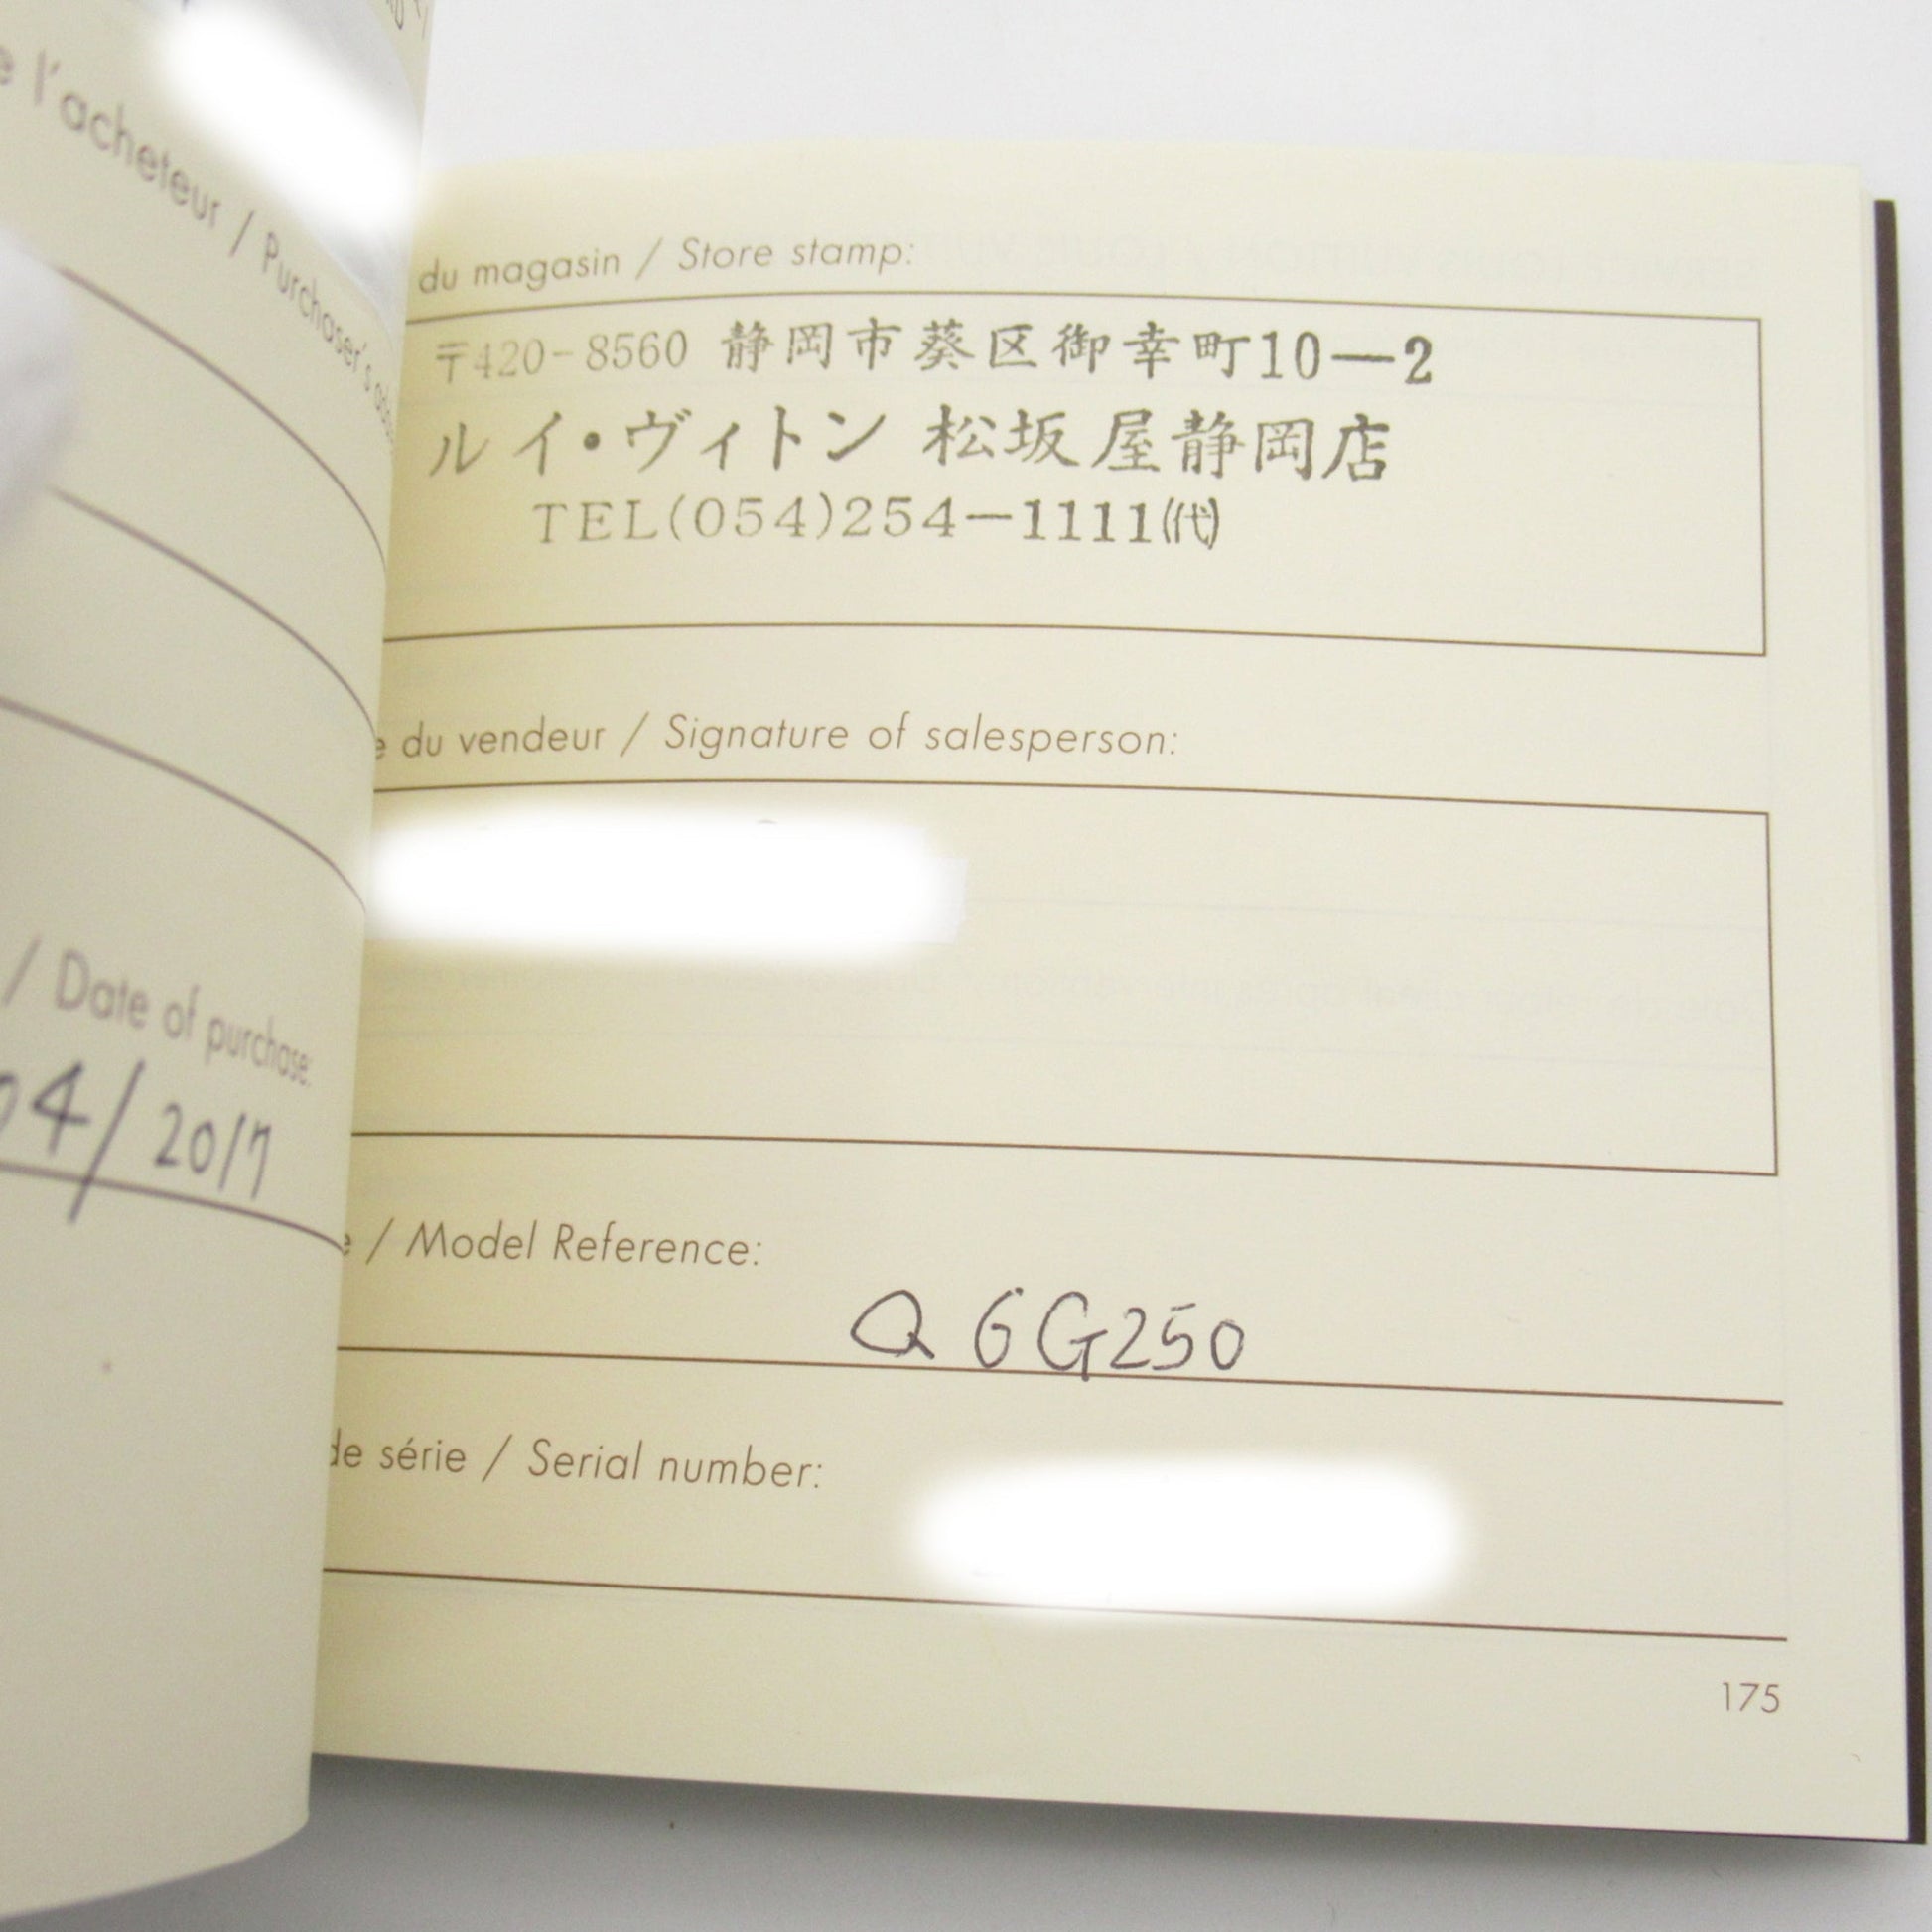 l'acheteur / Purchaser's
/ Date of purchase:
04/2017
du magasin / Store stamp:
〒420-8560 静岡市葵区御幸町10―2
ルイ・ヴィトン 松坂屋静岡店
TEL(054)254―1111㈹
du vendeur / Signature of salesperson:
/ Model Reference:
Q6G250
de série / Serial number:
175